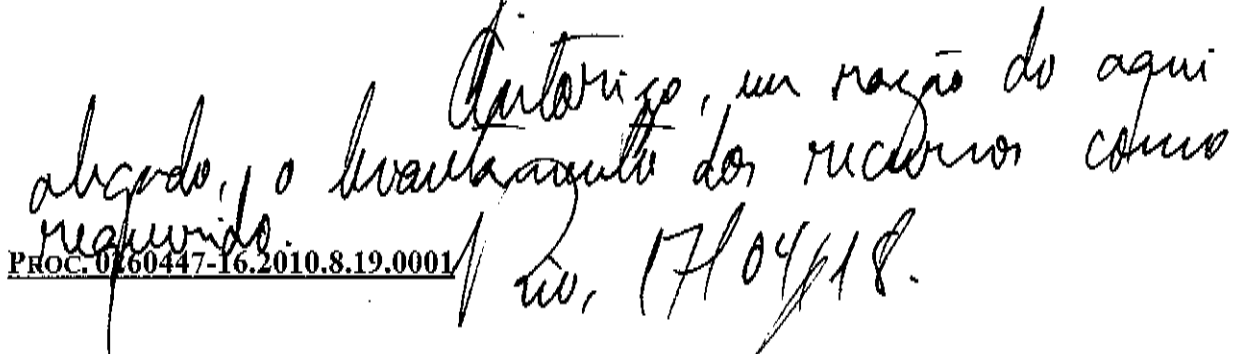 Autorizo, em razão do aqui
alegado, o levantamento dos recursos como
requerido.
PROC. 0260447-16.2010.8.19.0001
Rio, 17/04/18.